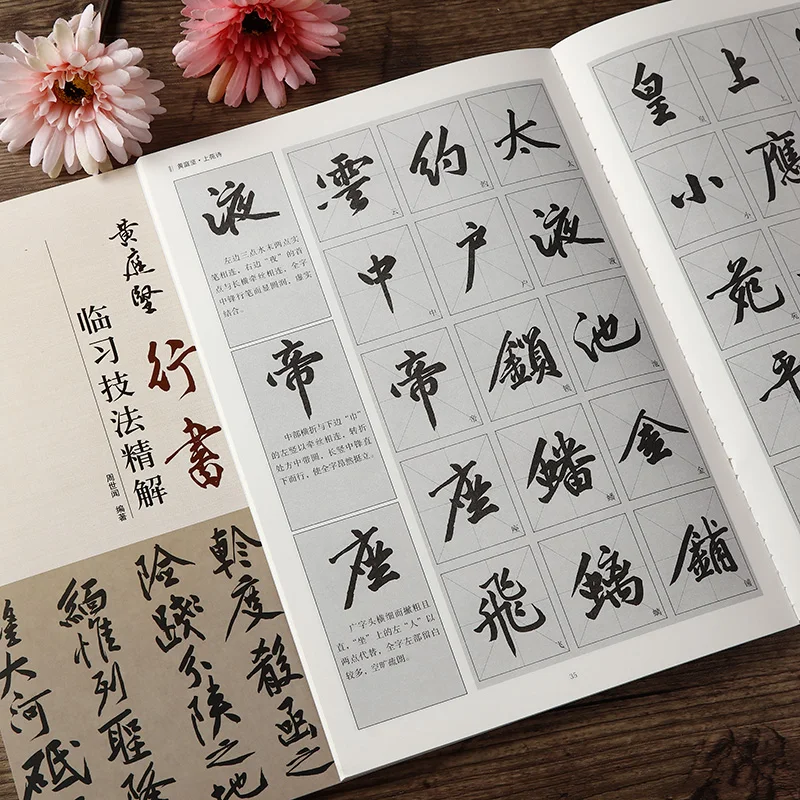 黄庭堅
行書
临习技法精解
周世闻 编著
軫度殽函之
險踐分陝之地
緬惟列聖降
望大河砥
黄庭坚·上苑诗
液
左边三点水末两点实
笔相连,右边“夜”的首
点与长横牵丝相连,全字
中锋行笔而显圆润,虚实
结合。
帝
中部横折与下边“巾”
的左竖以牵丝相连,转折
处方中带圆,长竖中锋直
下而行,使全字昂然挺立。
座
广字头横细而撇粗且
直,“坐”上的左“人”以
两点代替,全字左部留白
较多,空旷疏朗。
雲 約 太
云 约 太
中 户 液
中 户 液
帝 鎖 池
帝 锁 池
座 蟠 金
座 蟠 金
飛 螭 鋪
飞 螭 铺
35
皇 上
皇 上
小 應
小
苑
苑
平